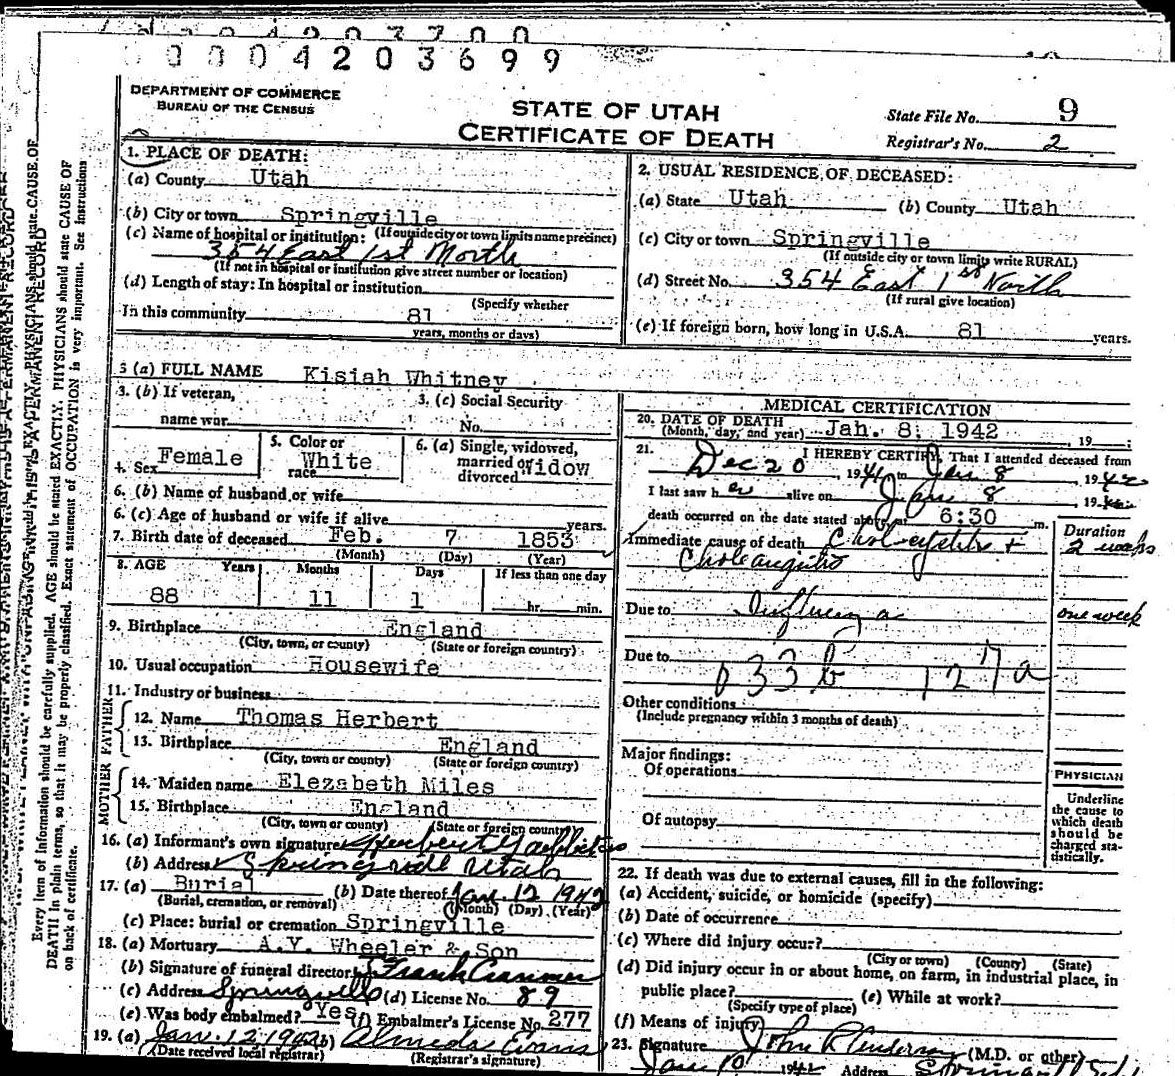 0004203699
DEPARTMENT OF COMMERCE
BUREAU OF THE CENSUS
STATE OF UTAH
CERTIFICATE OF DEATH
State File No. 9
Registrar's No. 2
1. PLACE OF DEATH:
(a) County Utah
(b) City or town Springville
(c) Name of hospital or institution: (If outside city or town limits name precinct)
354 East 1st North
(If not in hospital or institution give street number or location)
(d) Length of stay: In hospital or institution
(Specify whether
In this community 81
years, months or days)
2. USUAL RESIDENCE OF DECEASED:
(a) State Utah (b) County Utah
(c) City or town Springville
(If outside city or town limits write RURAL)
(d) Street No. 354 East 1st North
(If rural give location)
(e) If foreign born, how long in U.S.A. 81 years.
3 (a) FULL NAME Kisiah Whitney
3. (b) If veteran,
name war
3. (c) Social Security
No.
4. Sex Female
5. Color or
race White
6. (a) Single, widowed,
married or
divorced Widow
6. (b) Name of husband or wife
6. (c) Age of husband or wife if alive years.
7. Birth date of deceased Feb. 7 1853
(Month) (Day) (Year)
8. AGE Years Months Days If less than one day
88 11 1 hr. min.
9. Birthplace England
(City, town, or county) (State or foreign country)
10. Usual occupation Housewife
11. Industry or business
FATHER
12. Name Thomas Herbert
13. Birthplace England
(City, town or county) (State or foreign country)
MOTHER
14. Maiden name Elezabeth Miles
15. Birthplace England
(City, town or county) (State or foreign country)
16. (a) Informant's own signature Herbert
(b) Address Springville Utah
17. (a) Burial (b) Date thereof Jan. 12 1942
(Burial, cremation, or removal) (Month) (Day) (Year)
(c) Place: burial or cremation Springville
18. (a) Mortuary A.Y. Wheeler & Son
(b) Signature of funeral director Frank Crammer
(c) Address Springville (d) License No. 89
(e) Was body embalmed? Yes (f) Embalmer's License No. 277
19. (a) Jan. 12, 1942 (b) Almeda Evans
(Date received local registrar) (Registrar's signature)
MEDICAL CERTIFICATION
20. DATE OF DEATH
(Month, day, and year) Jan. 8, 1942, 19
21. I HEREBY CERTIFY, That I attended deceased from
Dec 20 1941 to Jan 8, 1942
I last saw her alive on Jan 8 1942
death occurred on the date stated above at 6:30 m.
Duration
Immediate cause of death Cholecystitis + 2 weeks
Choleangitis
Due to Influenza one week
Due to
033b 127a
Other conditions
(Include pregnancy within 3 months of death)
Major findings:
Of operations
Of autopsy
PHYSICIAN
Underline
the cause to
which death
should be
charged sta-
tistically.
22. If death was due to external causes, fill in the following:
(a) Accident, suicide, or homicide (specify)
(b) Date of occurrence
(c) Where did injury occur?
(City or town) (County) (State)
(d) Did injury occur in or about home, on farm, in industrial place, in
public place? (e) While at work?
(Specify type of place)
(f) Means of injury
23. Signature John R Anderson (M.D. or other)
Jan 10 1942 Address
Every item of information should be carefully supplied. AGE should be stated EXACTLY. PHYSICIANS should state CAUSE OF
DEATH in plain terms, so that it may be properly classified. Exact statement of OCCUPATION is very important. See instructions
on back of certificate.